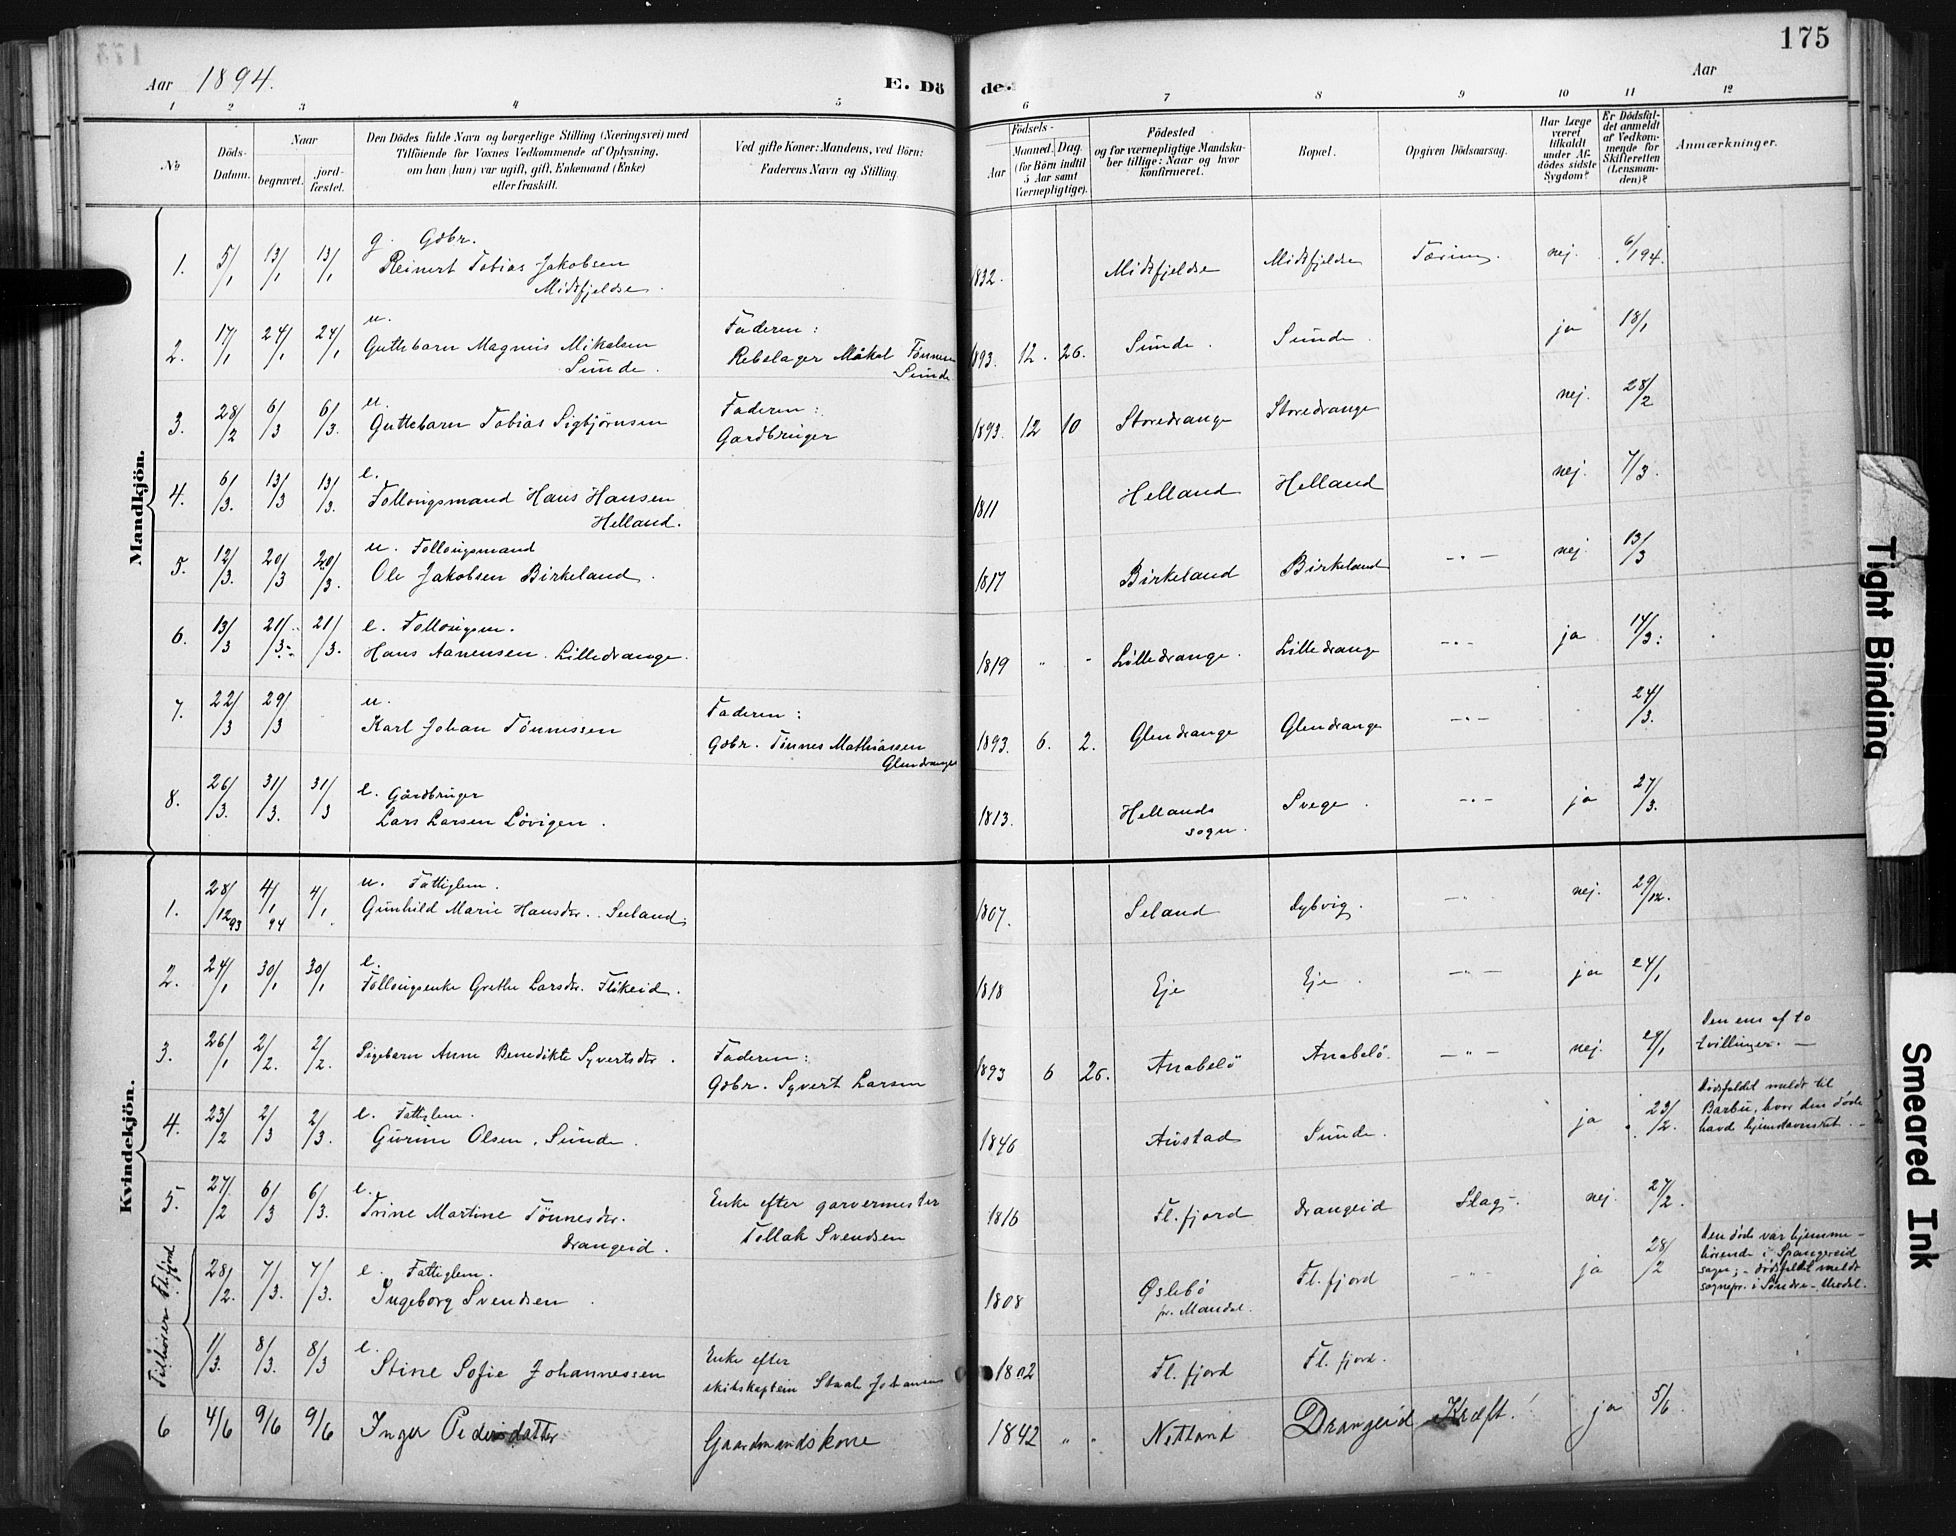 175
Aar 1894.
E. Döde.
Aar
1 2 3 4 5 6 7 8 9 10 11 12
No
Döds-Datum.
Naar
begravet.
jord-fæstet.
Den Dödes fulde Navn og borgerlige Stilling (Næringsvei) med
Tilföiende for Voxnes Vedkommende af Oplysning,
om han (hun) var ugift, gift, Enkemand (Enke)
eller fraskilt.
Ved gifte Koner: Mandens, ved Börn:
Faderens Navn og Stilling.
Födsels-
Aar
Maaned. Dag.
(for Börn indtil
5 Aar samt
Værnepligtige).
Födested
og for værnepligtige Mandska-
ber tillige: Naar og hvor
konfirmeret.
Bopæl.
Opgiven Dödsaarsag.
Har Læge
været
tilkaldt
under Af-
dödes sidste
Sygdom?
Er Dödsfal-
det anmeldt
af Vedkom-
mende for
Skifteretten
(Lensman-
den)?
Anmærkninger.
Mandkjön.
1. 5/1 13/1 13/1 g. Gdbr. Reinert Tobias Jakobsen Midtfjeldse. 1832. Midtfjeldse Midtfjeldse Tæring. nej. 6/1 94.
2. 17/1 24/1 24/1 u. Guttebarn Magnus Mikalsen Sunde. Faderen: Rebslager Mikal Tönnesen Sunde 1893. 12. 26. Sunde. Sunde. ja 18/1
3. 28/2 6/3 6/3. u. Guttebarn Tobias Sigbjørnsen Faderen: Gardbruger 1893. 12 10 Storedrange Storedrange nej. 28/2
4. 6/3. 13/3 13/3. e. Follougsmand Hans Hansen Helland. 1811 Helland Helland nej. 7/3.
5. 12/3. 20/3 20/3. u. Follougsmand Ole Jakobsen Birkeland. 1817 Birkeland Birkeland -"- nej. 13/3
6. 13/3 21/3. 21/3. e. Follougsm. Hans Aanensen Lilledrange. 1819 " " Lilledrange. Lilledrange -"- ja 14/3.
7. 22/3 29/3 u. Karl Johan Tönnessen Faderen: Gdbr. Tönnes Mathiassen Glendrange 1893. 6. 2. Glendrange Glendrange -"- 24/3.
8. 26/3. 31/3. 31/3 e. Gårdbruger Lars Larsen Lövigen. 1813. Hellands sogn. Svege. -"- ja 27/3.
Kvindekjön.
1. 28/12 93 4/1 94 4/1. u. Fattiglem. Gunhild Marie Hansdtr. Seeland. 1807. Seland Dybvig. -"- nej. 29/12.
2. 24/1 30/1 30/1 e. Follougsenke Grethe Larsdtr. Flikeid. 1818 Eje Eje. -"- ja 24/1
3. 26/1 2/2. 2/2. Pigebarn Anne Benedikte Syvertsdtr. Faderen: Gdbr. Syvert Larsen 1893 6 26. Anabelö Anabelö. -"- nej. 29/1 Den ene af to tvillinger. —
4. 23/2 2/3 2/3. e. Fattiglem. Gurine Olsen, Sunde. 1846 Austad Sunde. ja 23/2. Dødsfaldet meldt til Barbu, hvor den døde havd hjemstavnsret. -
5. 27/2 6/3 6/3. e. Trine Martine Tönnesdtr. Drangeid. Enke efter garvermester Tollak Svendsen 1816 Fl. fjord Drangeid Slag- nej. 27/2.
Tilhører Fl.fjord
28/2. 7/3. 7/3. e. Fattiglem. Ingeborg Svendsen 1808 Øslebö pr. Mandal. Fl. fjord -"- ja 28/2 Den døde var hjemme-hörende i Spangereid sogn; - dødsfaldet meldt sognepr. i Söndre-Undal.
1/3. 8/3. 8/3 e. Stine Sofie Johannessen Enke efter skibskaptein Staal Johansen 1802 Fl. fjord Fl. fjord.
6 4/6 9/6 9/6 Inger Pedersdatter Gaardmandskone 1842 " " Netland Drangeid Kræft. ja 5/6
Tight Binding
Smeared Ink